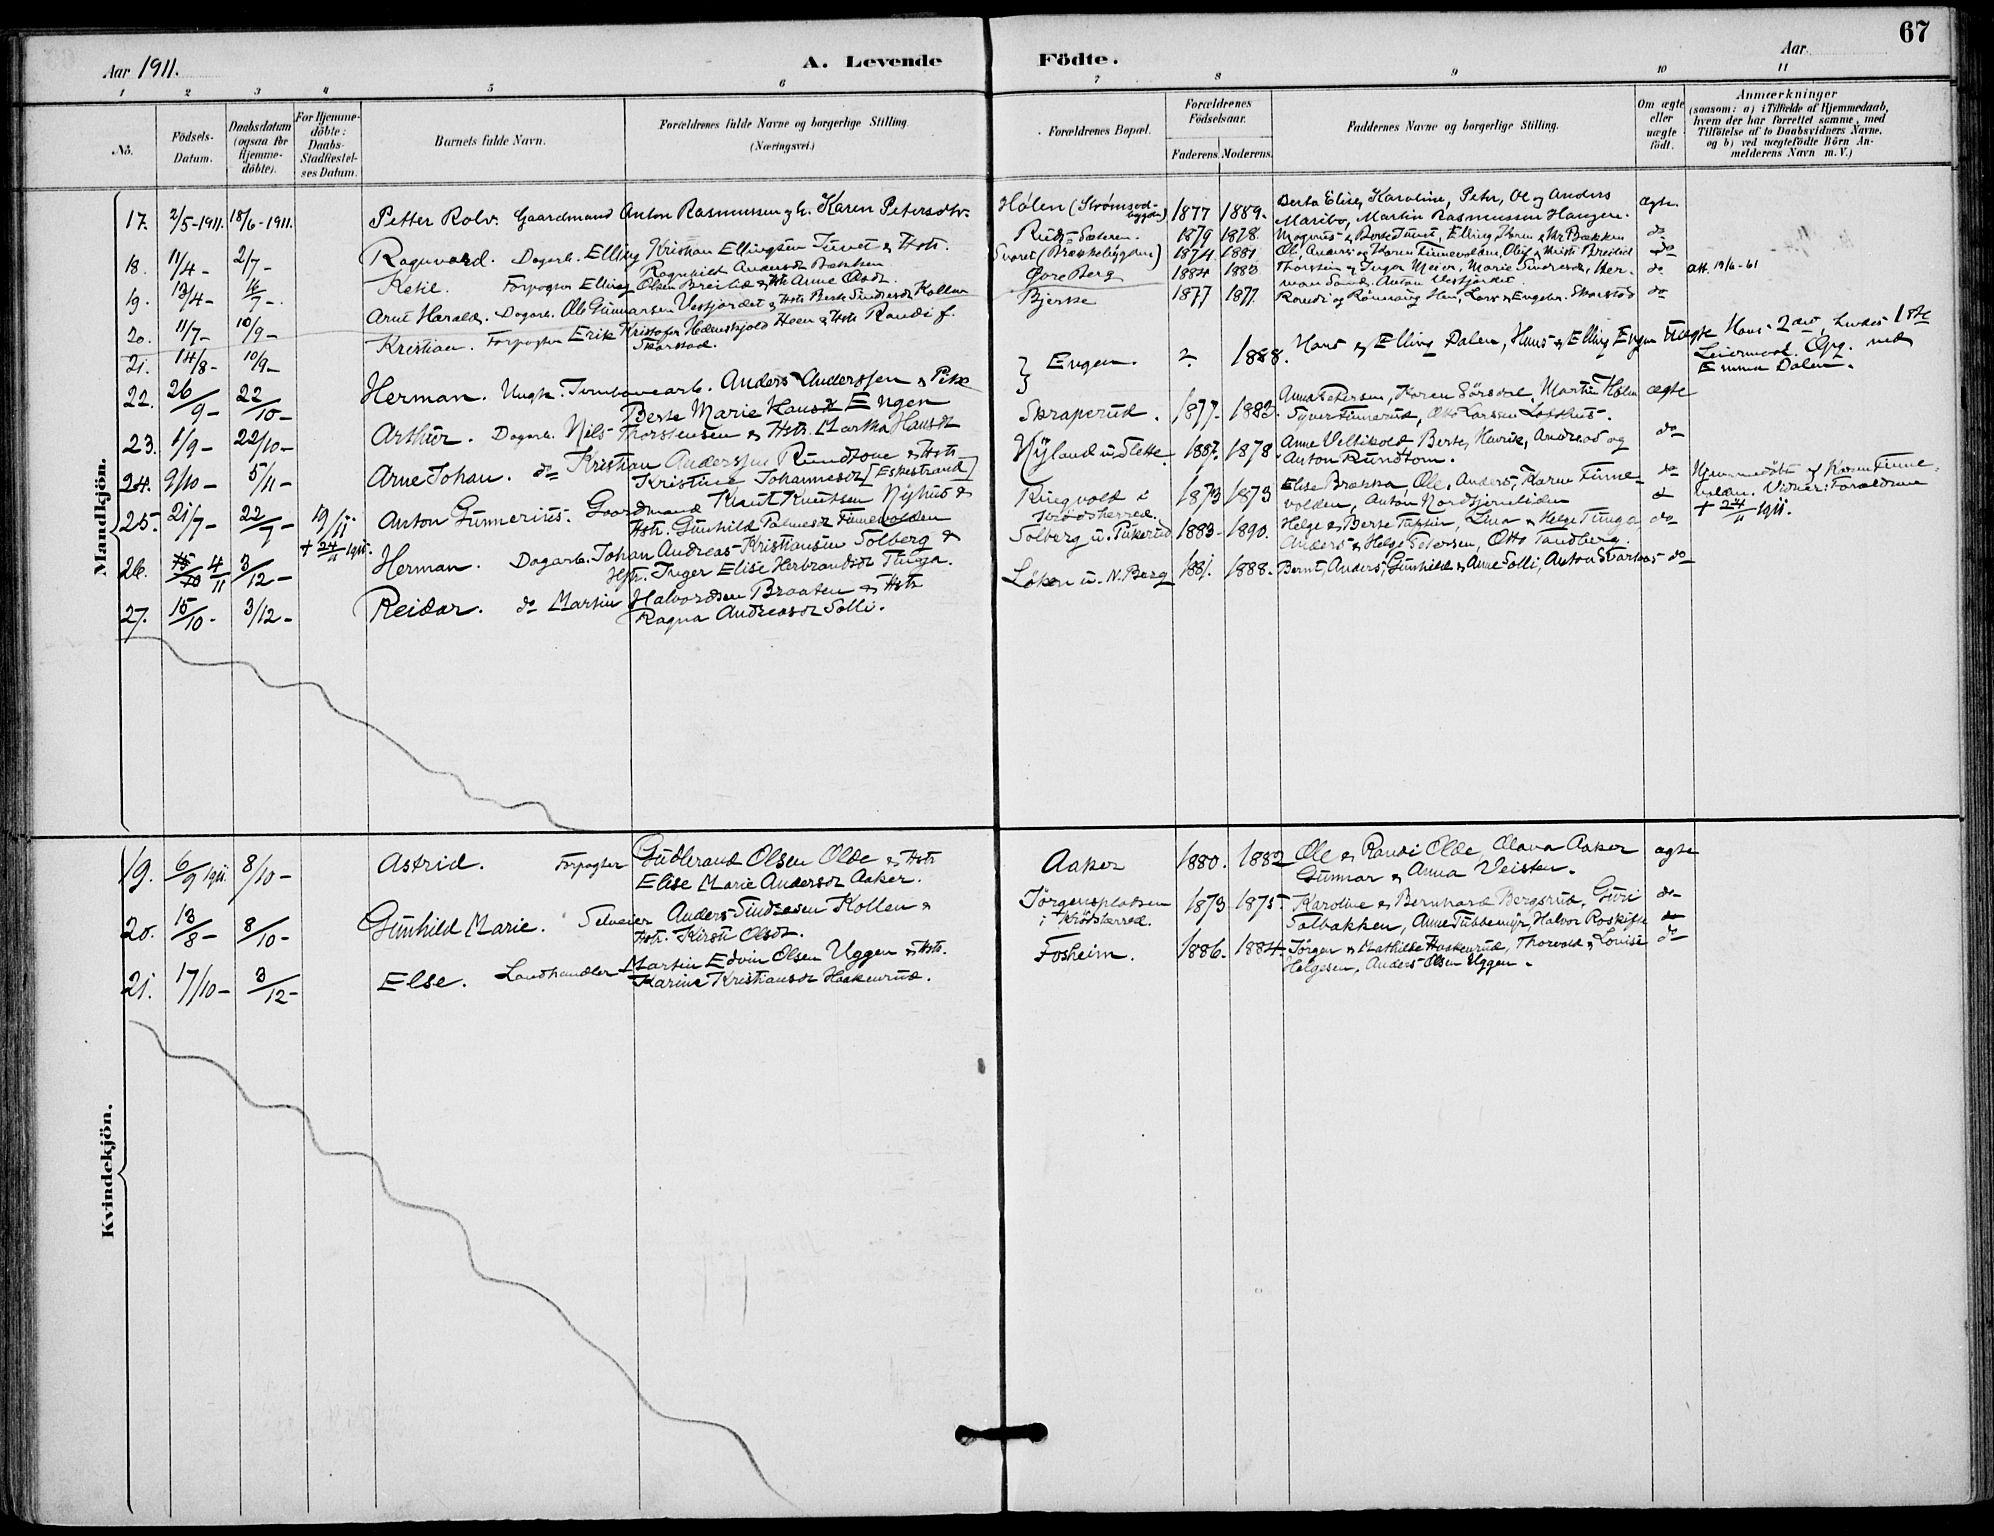 67
Aar 1911.
A. Levende
Födte.
Aar
1 2 3 4 5 6 7 8 9 10 11
No.
Födsels-Datum.
Daabsdatum (ogsaa for Hjemme-döbte).
For Hjemme-döbte: Daabs-Stadfæstel-ses Datum.
Barnets fulde Navn.
Forældrenes fulde Navne og borgerlige Stilling (Næringsvei.)
Forældrenes Bopæl.
Forældrenes Födselsaar.
Faderens. Moderens.
Faddernes Navne og borgerlige Stilling.
Om ægte eller uægte födt.
Anmærkninger (saasom: a) i Tilfælde af Hjemmedaab, hvem der har forrettet samme, med Tilföielse af to Daabsvidners Navne, og b) ved uægtefödte Börn An-melderens Navn m. V.)
Mandkjön.
17. 2/5-1911. 18/6-1911. Petter Rolv. Gaardmand Anton Rasmussen og h. Karen Petersdtr. Hølen (Strømsod-bygden) 1877 1889. Berta Elise, Karoline, Petr, Ol og Anders
Maribo, Martin Rasmussen Haugen. ægte.
18. 11/4- 2/7- Ragnvald. Dagarb. Elling Kristian Ellingsen Tuvet & Hstr.
Ragnhild Andersdt Bakken 1879 1878. do
19. 13/4- 16/7-. Ketil. Forpagter Elling Olsen Breilid & Hstr Anne Olsdt. 1874. 1881 Ol, Anders og Karen Finnevolden, Olaf & Kristi Breilid do
20. 11/7- 10/9- Arnt Harald. Dagarb. Ole Gunnarsen Vestjordet & Hstr Berte Sindresdt Kollen Øvre Berg 1884 1883 Thorstein & Inger Meier, Marie Sindresdt, Her-
man Sand. Anton Vestjordet do att. 19/6-61
21. 14/8- 10/9- Kristian. Forpagter Erik Kristofer Hemskjold Heen & Hstr Randi f.
Skarstad. Bjerke 1877 1877. do
22. 26/9- 22/10- Herman. Ungk. Tømbonearb. Anders Anderssen & Pike
Berte Marie Hansdt Engen Engen. ? 1888. Hans & Elling Dalen, Hans & Elling Engen Uægte Hans 2det, hendes 1ste
Leiermaal. Opg. ved
Emma Dalen.
23. 1/9- 22/10- Arthur. Dagarb. Nils Thorstensen & Hstr. Martha Hansdt Skraperud. 1877. 1883. Anna Petersen, Karen Sørsdal, Martin Holm
Syver Finnerud, Otto Larsen Lofthus. ægte
24. 9/10- 5/11- Arne Johan. do Kristian Anderssen Rundtom & Hstr.
Kristine Johannesdt [Eskestrand] 1887. 1878. Anne Vellikold Berte, Henrik, Andreas og
Anton Rundtom. do
25. 21/7- 22/7- 19/11 + 24/11 1911. Anton Gunnerius. Gaardmand Knut Knutsen Nyhus &
Hstr. Gunhild Palmesdt Finnevolden Ringvold i
Krødsherred. 1873 1873 Elise Brakka, Ole, Anders, Karen Finne-
volden, Anton Nordtjernliden do Hjemmedøbt af Karen Finne-
volden. Vidner: Forældrene
+ 24/11 1911.
26. 15/10 4/11 3/12- Herman. Dagarb. Johan Andreas Kristiansen Solberg &
Hstr. Inger Elise Herbrandsdt Tunga. Solberg u. Pukerud 1883- 1890. Helge & Berte Tuppin, Lina & Helge Tunga
Anders & Helge Petersen, Otto Tandberg. do
27. 15/10- 3/12- Reidar. do Martin Halvorsen Braaten & Hstr
Ragna Andreasdt Solli. Løken u. N. Berg 1881. 1888. Bernt, Anders, Gunhild & Anne Solli, Anton Svartaas do
Kvindekjön.
19. 6/9 1911. 8/10- Astrid. Forpagter Gudbrand Olsen Olde & Hstr
Elise Marie Andersdt Aaker. Aaker 1880. 1882 Ole & Randi Olde, Olava Aaker
Gunnar & Anna Veisten. ægte
20. 13/8- 8/10- Gunhild Marie. Selveier Anders Sindresen Kollen &
Hstr. Kirsti Olsdt. Jørgenspladsen
i Krødsherred. 1873 1875- Karoline & Bernhard Bergsrud, Guri
Solbakken, Anne Tubbemyr, Halvor Roskifte do
21. 17/10- 3/12- Else. Landhandler Martin Edvin Olsen Uggen & Hstr.
Karine Kristiansdt Haakenrud. Fosheim. 1886. 1884. Jørgen & Mathilde Haakenrud, Thorvald & Lovise
Helgesen, Anders Olsen Uggen. do